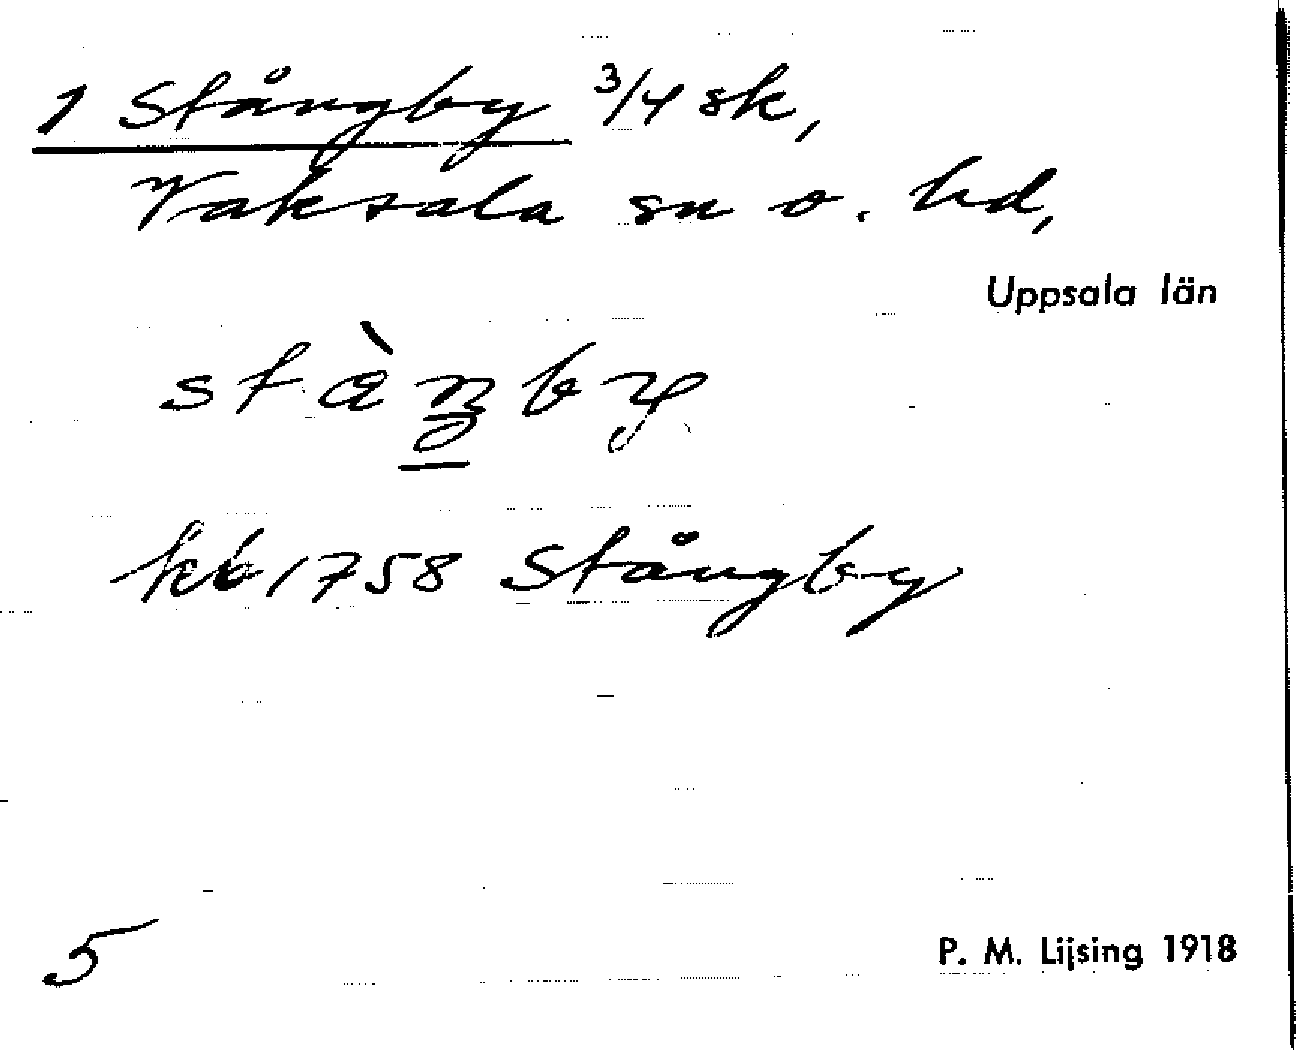 1 Stångby 3/4 sk,
Vaksala sn o. hd,
Uppsala län
kb 1758 Stångby
5
P. M. Lijsing 1918